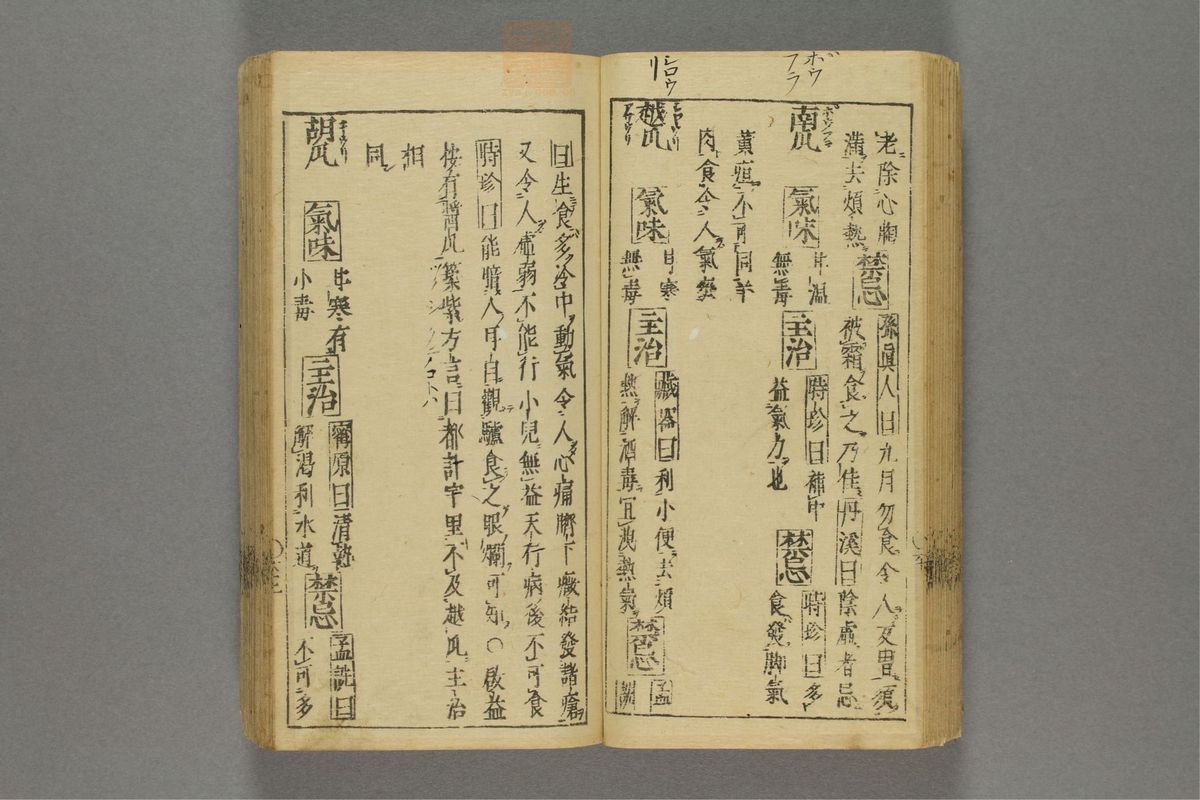 ボウ
フラ
シロウ
リ
老除心胸
滿去煩熱
禁忌
孫眞人曰九月勿食令人反胃須
被霜食之乃佳丹溪曰陰虛者忌
南瓜
ボウフラ
氣味
甘温
無毒
主治
時珍曰補中
益氣力也
禁忌
時珍曰多
食發脚氣
黄疸不可同羊
肉食令人氣壅
越瓜
氣味
甘寒
無毒
主治
藏器曰利小便去煩
熱解酒毒宜洩熱氣
禁忌
孟
詵
曰生食多冷中動氣令人心痛臍下癥結發諸瘡
又令人虛弱不能行小兒無益天行病後不可食
時珍曰能暗人耳目觀驢食之眼爛可知〇後益
按有醤瓜纂紫方言曰都計宇里不及越瓜主治
相
同
胡瓜
キウリ
氣味
甘寒有
小毒
主治
寗原曰清熱
解渴利水道
禁忌
孟詵曰
不可多